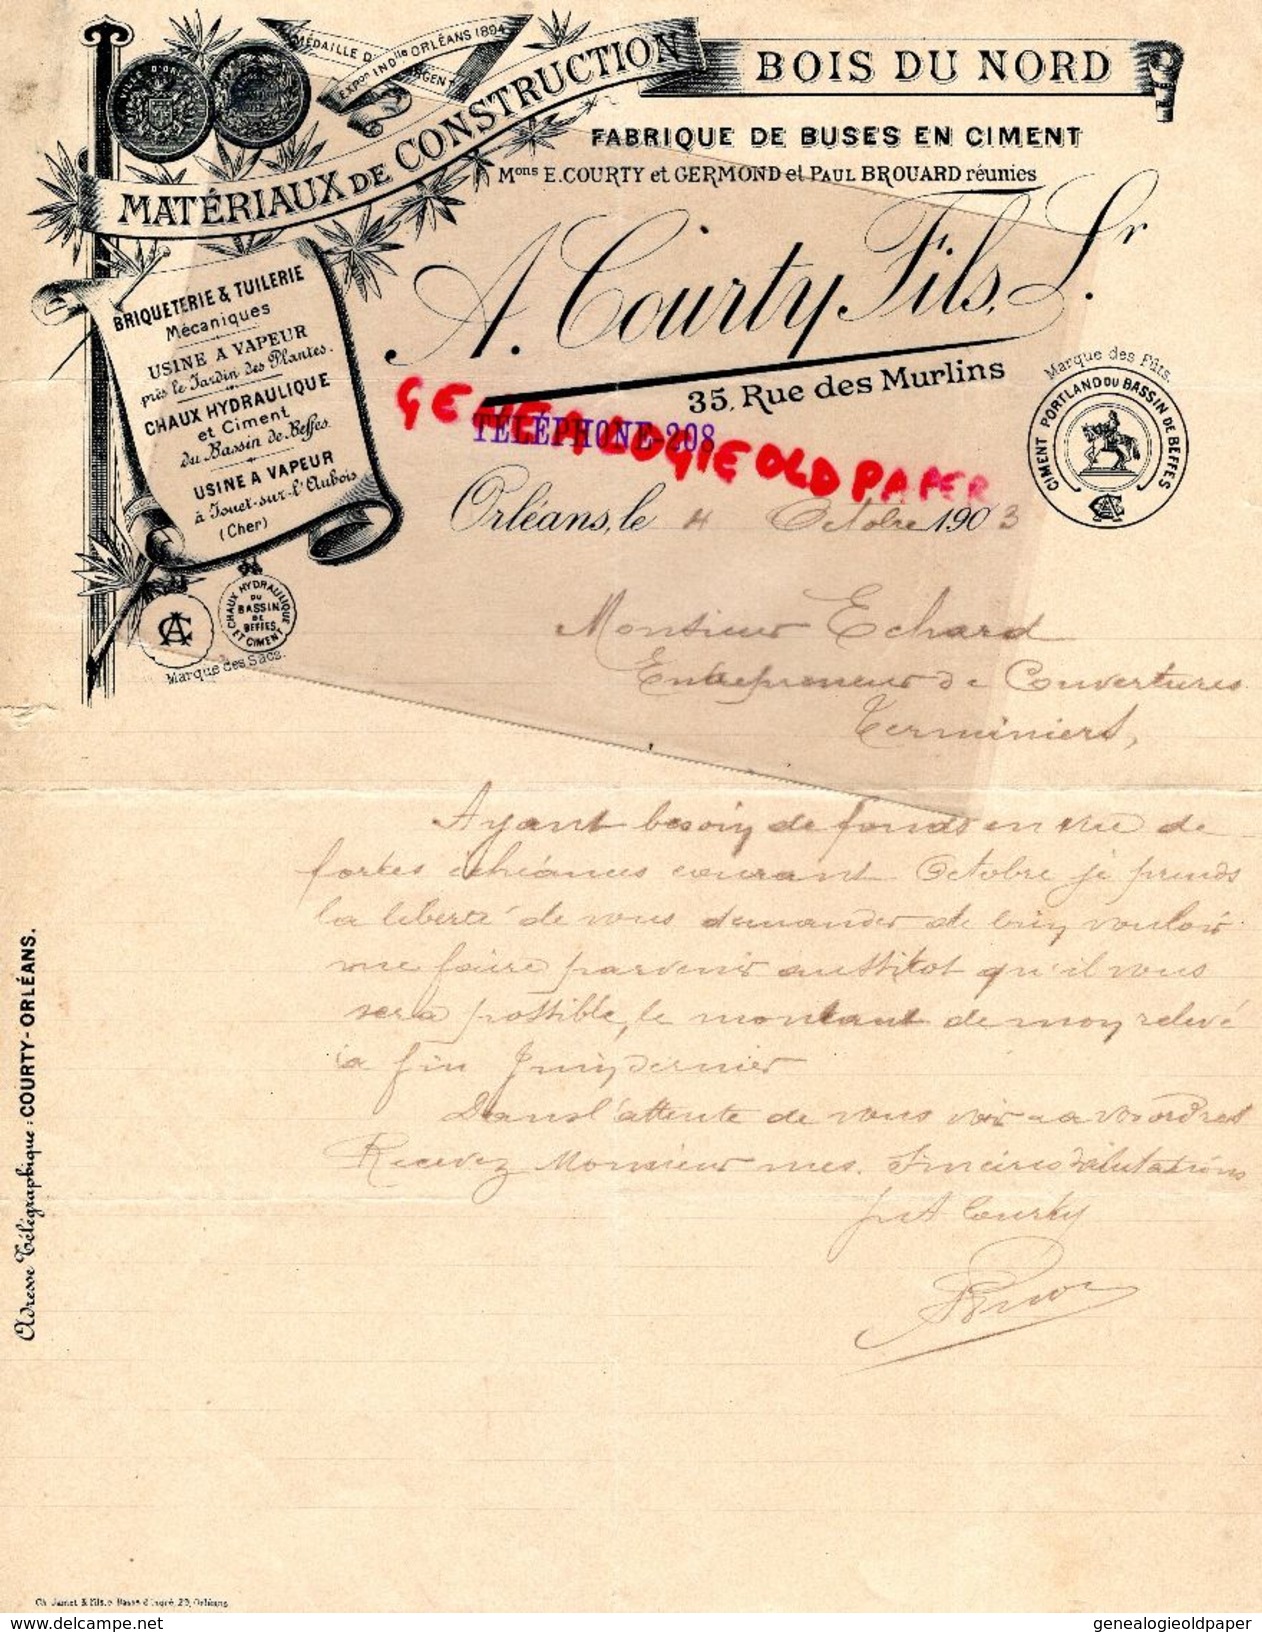 MÉDAILLE D'ARGENT
EXPon INDlle ORLÉANS 1894
VILLE D'ORLÉANS
MATÉRIAUX DE CONSTRUCTION
BOIS DU NORD
FABRIQUE DE BUSES EN CIMENT
Mons E. COURTY et GERMOND et PAUL BROUARD réunies
A. Courty Fils, Sr.
35, Rue des Murlins
TÉLÉPHONE 208
GENEALOGIE OLD PAPER
BRIQUETERIE & TUILERIE
Mécaniques
USINE A VAPEUR
près le Jardin des Plantes.
CHAUX HYDRAULIQUE
et Ciment
du Bassin de Beffes
USINE A VAPEUR
à Jouet-sur-l'Aubois
(Cher)
Marque des Fûts.
CIMENT PORTLAND DU BASSIN DE BEFFES
CA
Orléans, le 4 Octobre 1903
CA
CHAUX HYDRAULIQUE
DU
BASSIN
DE
BEFFES
ET CIMENT
Marque des Sacs.
Monsieur Echard
Entrepreneur de Couvertures
Terminiers,
Ayant besoin de fonds en vue de
fortes échéances courant Octobre je prends
la liberté de vous demander de bien vouloir
me faire parvenir aussitôt qu'il vous
sera possible, le montant de mon relevé
à fin Juin dernier
Dans l'attente de vous voir à vos ordres
Recevez Monsieur mes sincères salutations
pr A Courty
Adresse Télégraphique : COURTY - ORLÉANS.
Ch. Jamet & Fils, r. Basse d'Ingré, 29, Orléans
genealogieoldpaper